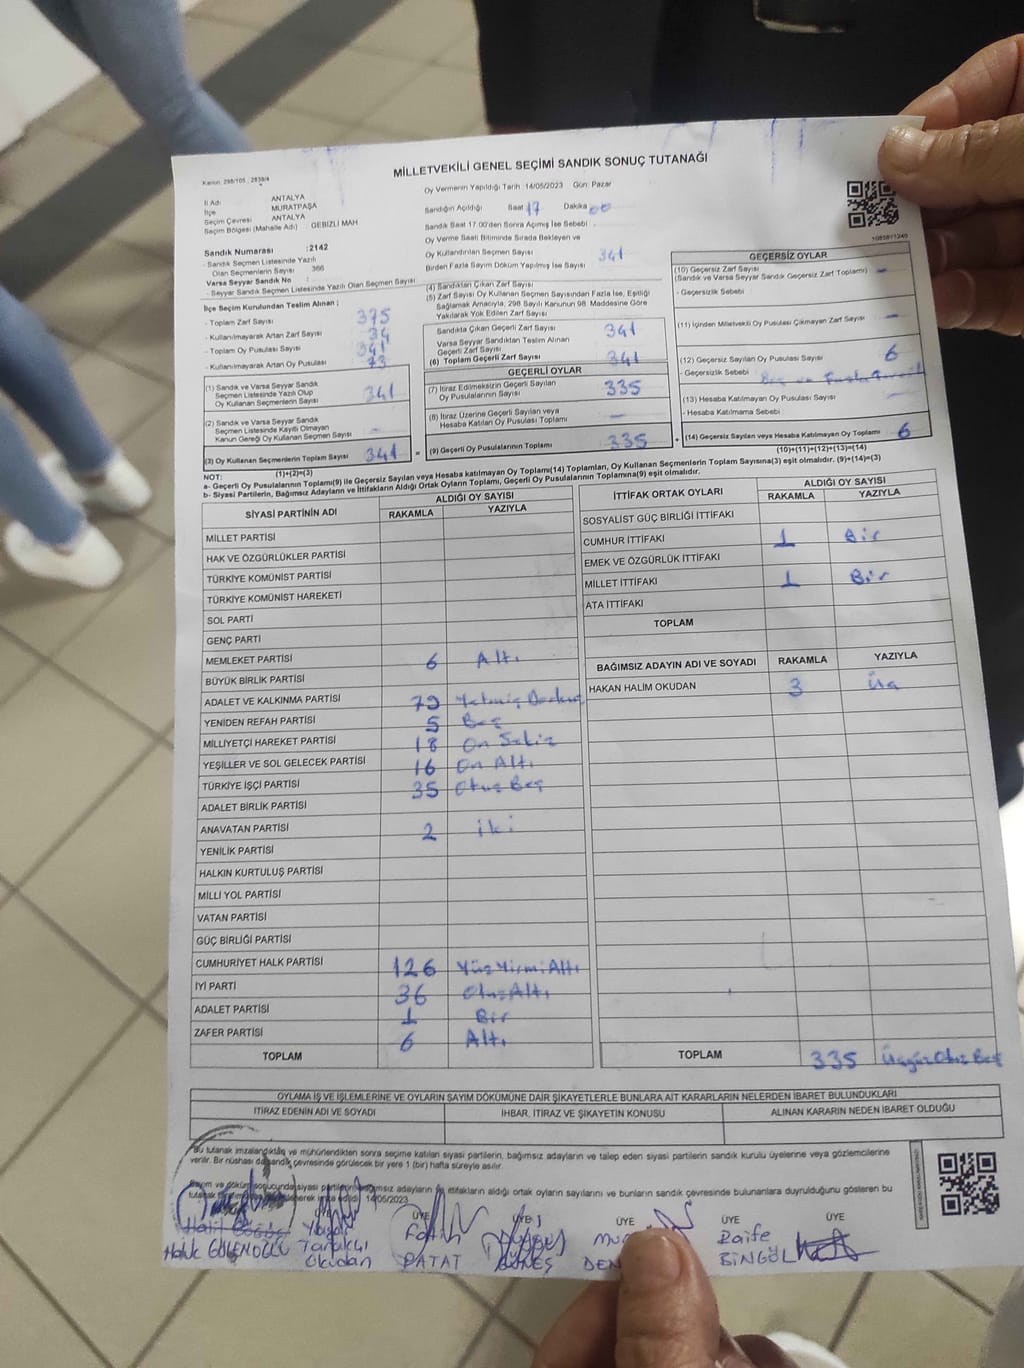 MİLLETVEKİLİ GENEL SEÇİMİ SANDIK SONUÇ TUTANAĞI
Kanun: 298/105 ; 2839/4
İl Adı ANTALYA
İlçe MURATPAŞA
Seçim Çevresi ANTALYA
Seçim Bölgesi (Mahalle Adı) GEBİZLİ MAH
Sandık Numarası :2142
- Sandık Seçmen Listesinde Yazılı
Olan Seçmenlerin Sayısı 366
Varsa Seyyar Sandık No :
- Seyyar Sandık Seçmen Listesinde Yazılı Olan Seçmen Sayısı
Oy Vermenin Yapıldığı Tarih :14/05/2023 Gün: Pazar
Sandığın Açıldığı Saat 17 Dakika 00
Sandık Saat 17.00'den Sonra Açılmış İse Sebebi
Oy Verme Saati Bitiminde Sırada Bekleyen ve
Oy Kullandırılan Seçmen Sayısı 341
Birden Fazla Sayım Döküm Yapılmış İse Sayısı
İlçe Seçim Kurulundan Teslim Alınan ;
- Toplam Zarf Sayısı 375
- Kullanılmayarak Artan Zarf Sayısı 34
- Toplam Oy Pusulası Sayısı
- Kullanılmayarak Artan Oy Pusulası
(1) Sandık ve Varsa Seyyar Sandık
Seçmen Listesinde Yazılı Olup
Oy Kullanan Seçmenlerin Sayısı 341
(2) Sandık ve Varsa Seyyar Sandık
Seçmen Listesinde Kayıtlı Olmayan
Kanun Gereği Oy Kullanan Seçmen Sayısı -
(3) Oy Kullanan Seçmenlerin Toplam Sayısı 341
(1)+(2)=(3)
(4) Sandıktan Çıkan Zarf Sayısı
(5) Zarf Sayısı Oy Kullanan Seçmen Sayısından Fazla İse, Eşitliği
Sağlamak Amacıyla; 298 Sayılı Kanunun 98. Maddesine Göre
Yakılarak Yok Edilen Zarf Sayısı
Sandıkta Çıkan Geçerli Zarf Sayısı 341
Varsa Seyyar Sandıktan Teslim Alınan
Geçerli Zarf Sayısı
(6) Toplam Geçerli Zarf Sayısı 341
GEÇERLİ OYLAR
(7) İtiraz Edilmeksizin Geçerli Sayılan
Oy Pusulalarının Sayısı 335
(8) İtiraz Üzerine Geçerli Sayılan veya
Hesaba Katılan Oy Pusulası Toplamı -
= (9) Geçerli Oy Pusulalarının Toplamı 335
1085971240
GEÇERSİZ OYLAR
(10) Geçersiz Zarf Sayısı -
(Sandık ve Varsa Seyyar Sandık Geçersiz Zarf Toplamı)
- Geçersizlik Sebebi
(11) İçinden Milletvekili Oy Pusulası Çıkmayan Zarf Sayısı -
(12) Geçersiz Sayılan Oy Pusulası Sayısı 6
- Geçersizlik Sebebi
(13) Hesaba Katılmayan Oy Pusulası Sayısı -
- Hesaba Katılmama Sebebi
+ (14) Geçersiz Sayılan veya Hesaba Katılmayan Oy Toplamı 6
(10)+(11)+(12)+(13)=(14)
NOT:
a- Geçerli Oy Pusulalarının Toplamı(9) ile Geçersiz Sayılan veya Hesaba katılmayan Oy Toplamı(14) Toplamları, Oy Kullanan Seçmenlerin Toplam Sayısına(3) eşit olmalıdır. (9)+(14)=(3)
b- Siyasi Partilerin, Bağımsız Adayların ve İttifakların Aldığı Ortak Oyların Toplamı, Geçerli Oy Pusulalarının Toplamına(9) eşit olmalıdır.
SİYASİ PARTİNİN ADI ALDIĞI OY SAYISI
RAKAMLA YAZIYLA
MİLLET PARTİSİ
HAK VE ÖZGÜRLÜKLER PARTİSİ
TÜRKİYE KOMÜNİST PARTİSİ
TÜRKİYE KOMÜNİST HAREKETİ
SOL PARTİ
GENÇ PARTİ
MEMLEKET PARTİSİ 6 Altı
BÜYÜK BİRLİK PARTİSİ
ADALET VE KALKINMA PARTİSİ 79 Yetmiş Dokuz
YENİDEN REFAH PARTİSİ 5 Beş
MİLLİYETÇİ HAREKET PARTİSİ 18 On Sekiz
YEŞİLLER VE SOL GELECEK PARTİSİ 16 On Altı
TÜRKİYE İŞÇİ PARTİSİ 35 Otuz Beş
ADALET BİRLİK PARTİSİ
ANAVATAN PARTİSİ 2 iki
YENİLİK PARTİSİ
HALKIN KURTULUŞ PARTİSİ
MİLLİ YOL PARTİSİ
VATAN PARTİSİ
GÜÇ BİRLİĞİ PARTİSİ
CUMHURİYET HALK PARTİSİ 126 Yüz Yirmi Altı
İYİ PARTİ 36 Otuz Altı
ADALET PARTİSİ 1 Bir
ZAFER PARTİSİ 6 Altı
TOPLAM
İTTİFAK ORTAK OYLARI ALDIĞI OY SAYISI
RAKAMLA YAZIYLA
SOSYALİST GÜÇ BİRLİĞİ İTTİFAKI
CUMHUR İTTİFAKI 1 Bir
EMEK VE ÖZGÜRLÜK İTTİFAKI
MİLLET İTTİFAKI 1 Bir
ATA İTTİFAKI
TOPLAM
BAĞIMSIZ ADAYIN ADI VE SOYADI RAKAMLA YAZIYLA
HAKAN HALİM OKUDAN 3 Üç
TOPLAM 335 Üçyüz Otuz Beş
OYLAMA İŞ VE İŞLEMLERİNE VE OYLARIN SAYIM DÖKÜMÜNE DAİR ŞİKAYETLERLE BUNLARA AİT KARARLARIN NELERDEN İBARET BULUNDUKLARI
İTİRAZ EDENİN ADI VE SOYADI İHBAR, İTİRAZ VE ŞİKAYETİN KONUSU ALINAN KARARIN NEDEN İBARET OLDUĞU
Bu tutanak imzalandıktan ve mühürlendikten sonra seçime katılan siyasi partilerin, bağımsız adayların ve talep eden siyasi partilerin sandık kurulu üyelerine veya gözlemcilerine
verilir. Bir nüshası da sandık çevresinde görülecek bir yere 1 (bir) hafta süreyle asılır.
Sayım ve döküm sonucunda siyasi partilerin, bağımsız adayların ve ittifakların aldığı ortak oyların sayılarını ve bunların sandık çevresinde bulunanlara duyrulduğunu gösteren bu
14/05/2023
ÜYE ÜYE ÜYE ÜYE ÜYE
Fatih
PATAT
GÜNEŞ
Raife
BİNGÖL